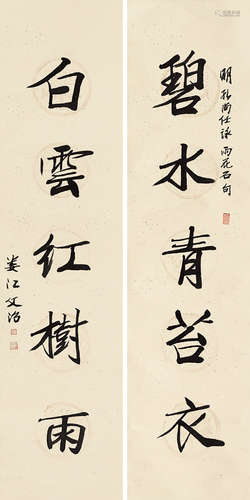 明孔尚任詠雨花石句
碧水青苔衣
白雲紅樹雨
婁江文治